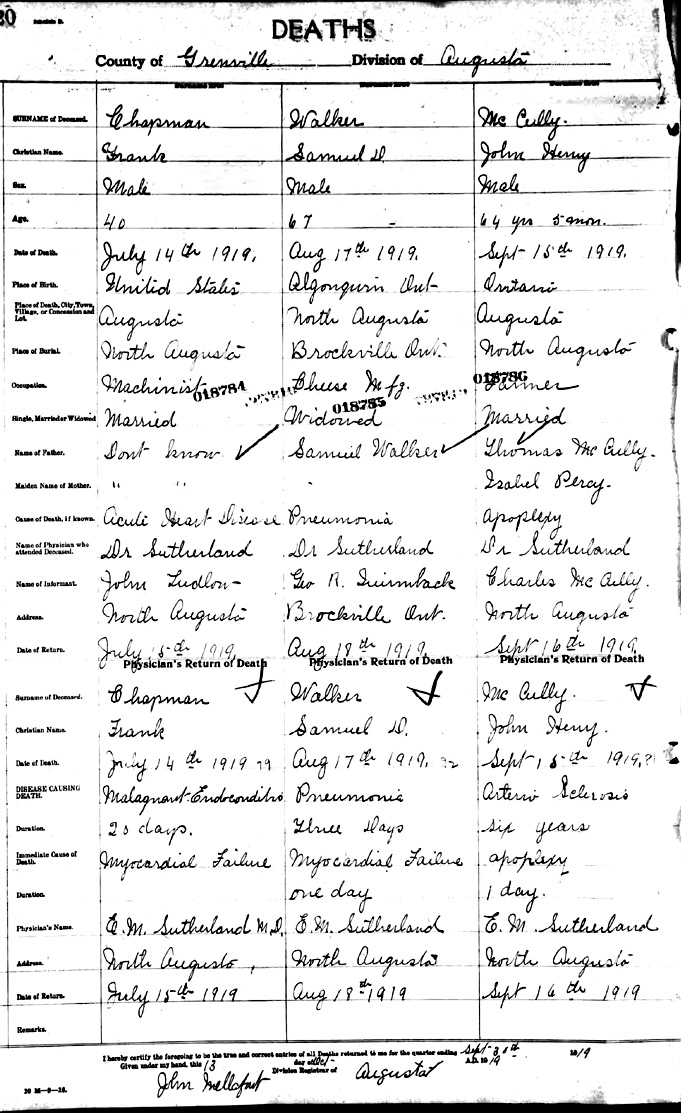 DEATHS
County of Grenville Division of Augusta
SURNAME of Deceased. Chapman Walker Mc Cully.
Christian Name. Frank Samuel D. John Henry
Sex. Male Male Male
Age. 40 67 - 64 yrs 5 mon.
Date of Death. July 14th 1919. Aug 17th 1919. Sept 15th 1919.
Place of Birth. United States Algonquin Ont Ontario
Place of Death, City, Town, Village, or Concession and Lot. Augusta North Augusta Augusta
Place of Burial. North Augusta Brockville Ont. North Augusta
Occupation. Machinist Cheese Mfg. Farmer
018784 018785 018786
Single, Married or Widowed Married Widowed Married
Name of Father. Dont know Samuel Walker Thomas Mc Cully.
Maiden Name of Mother. " " - Isabel Percy.
Cause of Death, if known. Acute Heart Disease Pneumonia Apoplexy
Name of Physician who attended Deceased. Dr Sutherland Dr Sutherland Dr Sutherland
Name of Informant. John Ludlow Geo R. Charles Mc Cully.
Address. North Augusta Brockville Ont. North Augusta
Date of Return. July 15th 1919. Aug 18th 1919. Sept 16th 1919.
Physician's Return of Death Physician's Return of Death Physician's Return of Death
Surname of Deceased. Chapman Walker Mc Cully.
Christian Name. Frank Samuel D. John Henry.
Date of Death. July 14th 1919 Aug 17th 1919. Sept 15th 1919.
DISEASE CAUSING DEATH. Malagnant Endoconditis Pneumonia Arterio Sclerosis
Duration. 20 days. Three Days six years
Immediate Cause of Death. Myocardial Failure Myocardial Failure apoplexy
Duration. one day 1 day.
Physician's Name. E. M. Sutherland M.D. E. M. Sutherland E. M. Sutherland
Address. North Augusta, North Augusta North Augusta
Date of Return. July 15th 1919 Aug 18th 1919 Sept 16th 1919
Remarks.
I hereby certify the foregoing to be the true and correct entries of all Deaths returned to me for the quarter ending Sept 30th 1919
Given under my hand, this 13 day of Oct A.D. 1919
John Division Registrar of Augusta
30 M-9-16.